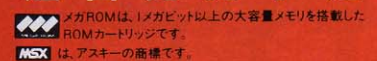 メガROMは、1メガビット以上の大容量メモリを搭載した
ROMカートリッジです。
MSX は、アスキーの商標です。